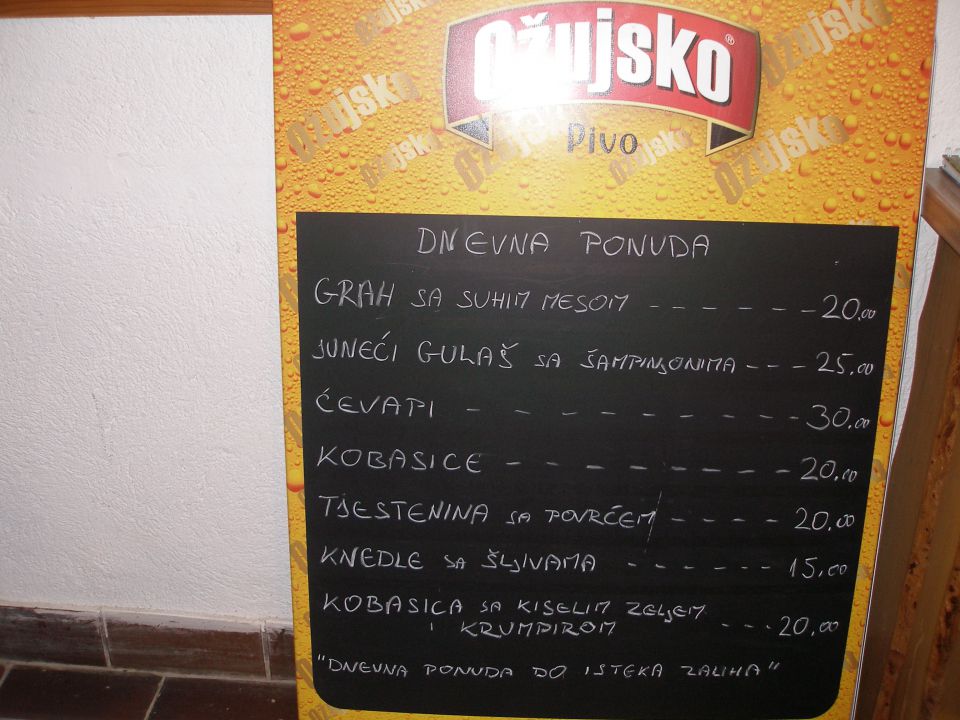 Ožujsko®
Pivo
Ožujsko
Ožujsko
Ožujsko
Ožujsko
Ožujsko
Ožujsko
DNEVNA PONUDA
GRAH SA SUHIM MESOM - - - - - - 20.00
JUNEĆI GULAŠ SA ŠAMPINJONIMA - - - 25.00
ĆEVAPI - - - - - - - - - 30.00
KOBASICE - - - - - - - - 20.00
TJESTENINA SA POVRĆEM - - - - 20.00
KNEDLE SA ŠLJIVAMA - - - - - - 15.00
KOBASICA SA KISELIM ZELJEM
I KRUMPIROM - - - 20.00
"DNEVNA PONUDA DO ISTEKA ZALIHA"